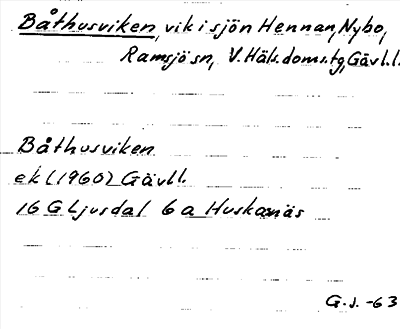 Båthusviken, vik i sjön Hennan, Nybo,
Ramsjö sn, V. Häls. doms.tg, Gävl.l.
Båthusviken
ek (1960) Gävl.l.
16 G Ljusdal 6 a Huskanäs
G.J. -63